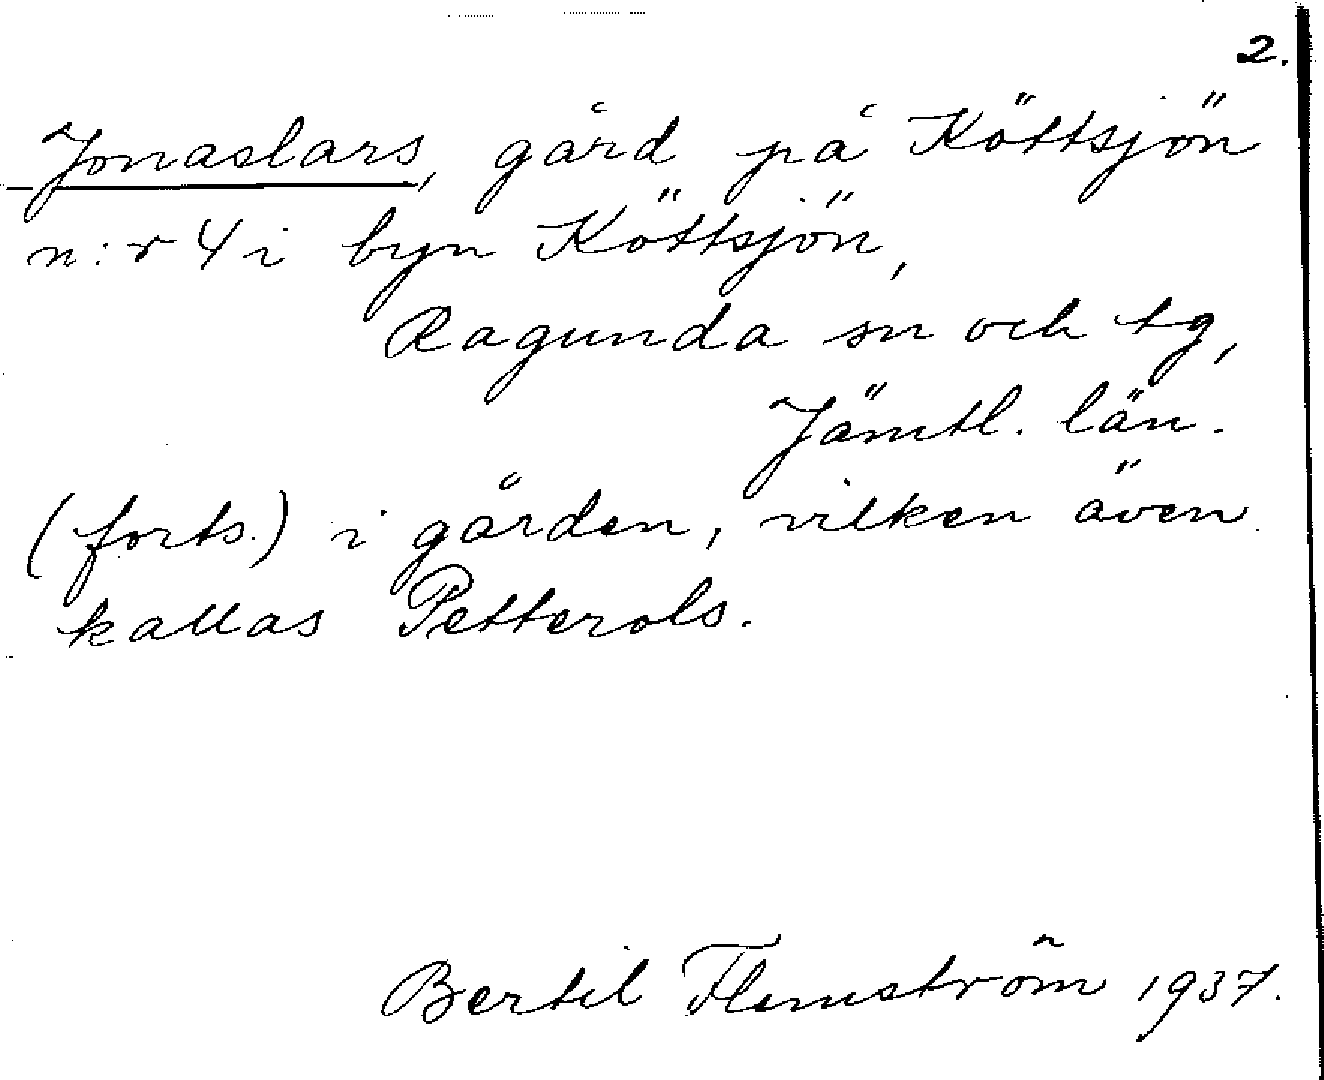 2.
Jonaslars, gård på Köttsjön
n:r 4 i byn Köttsjön,
Ragunda sn och tg,
Jämtl. län.
(forts.) i gården, vilken även
kallas Petterols.
Bertil Flemström 1937.